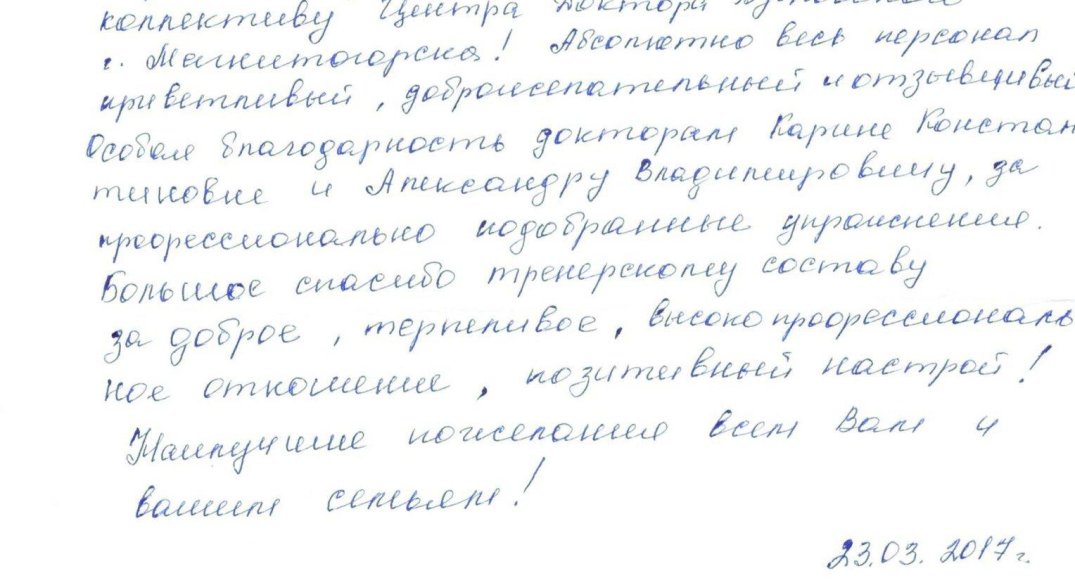 коллективу Центра Доктора
г. Магнитогорска! Абсолютно весь персонал
приветливый, доброжелательный и отзывчивый
Особая благодарность докторам Карине Констан
тиновне и Александру Владимировичу, за
профессионально подобранные упражнения.
Большое спасибо тренерскому составу
за доброе, терпеливое, высокопрофессиональ
ное отношение, позитивный настрой!
Наилучшие пожелания всем Вам и
вашим семьям!
23.03.2017г.